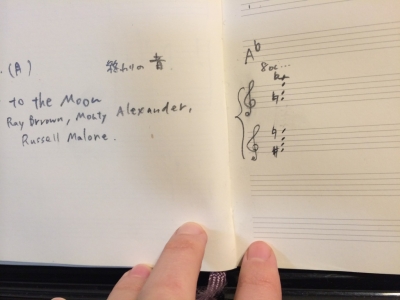 (A) 終わりの音
to the Moon
Ray Brown, Monty Alexander,
Russell Malone.
A♭
8va...